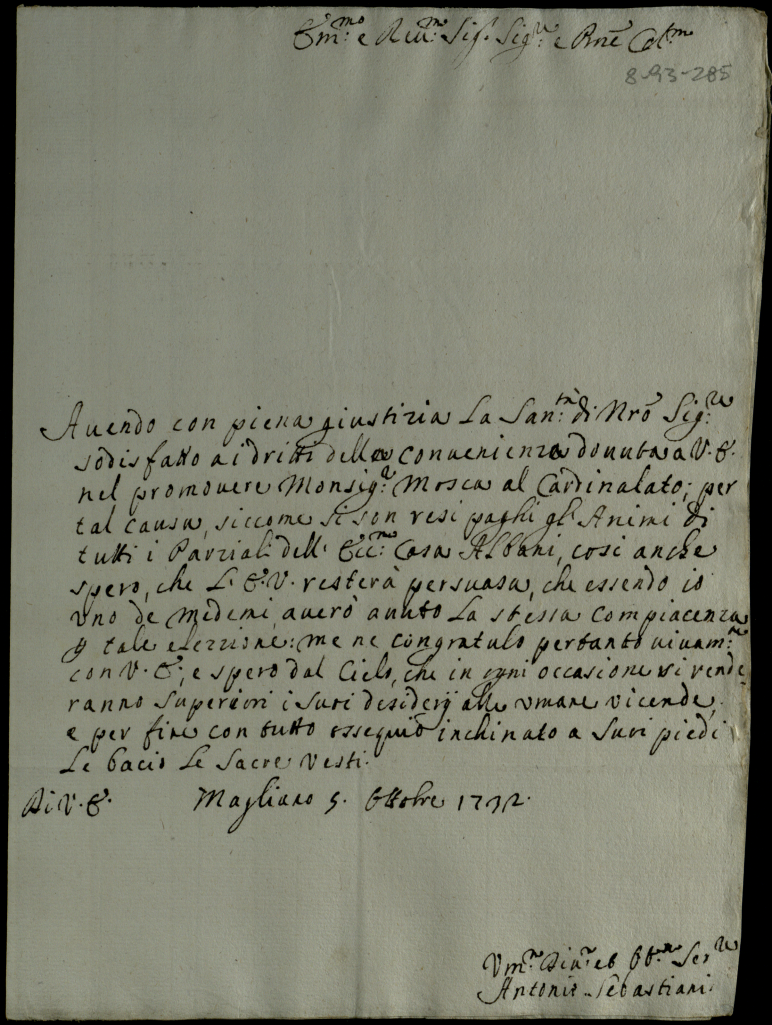 Em:mo e Reu:mo Sig.r Sig:re e Prōe Col:mo
8-93-285
Auendo con piena giustizia La San:tà di Nrō Sig:re
sodisfatto ai dritti della conuenienza douuta a V.E.
nel promouere Monsig:r Mosca al Cardinalato; per
tal causa, siccome si son resi paghi gl'Animi di
tutti i Parziali dell' Ecc:ma Casa Albani, così anche
spero, che L'E.V. resterà persuasa, che essendo io
uno de medemi auerò auuto La stessa compiacenza
p tale elezzione: me ne congratulo pertanto uiuam:te
con V.E., e spero dal Cielo, che in ogni occasione si rende
ranno Superiori i suoi disiderij alle umane vicende,
e per fine con tutto ossequio inchinato a Suoi piedi
Le bacio Le Sacre Vesti.
Di V.E. Magliano 5. Ottobre 1732.
Vm:o Diu:o ed Ob:mo Ser:re
Antonio Sebastiani